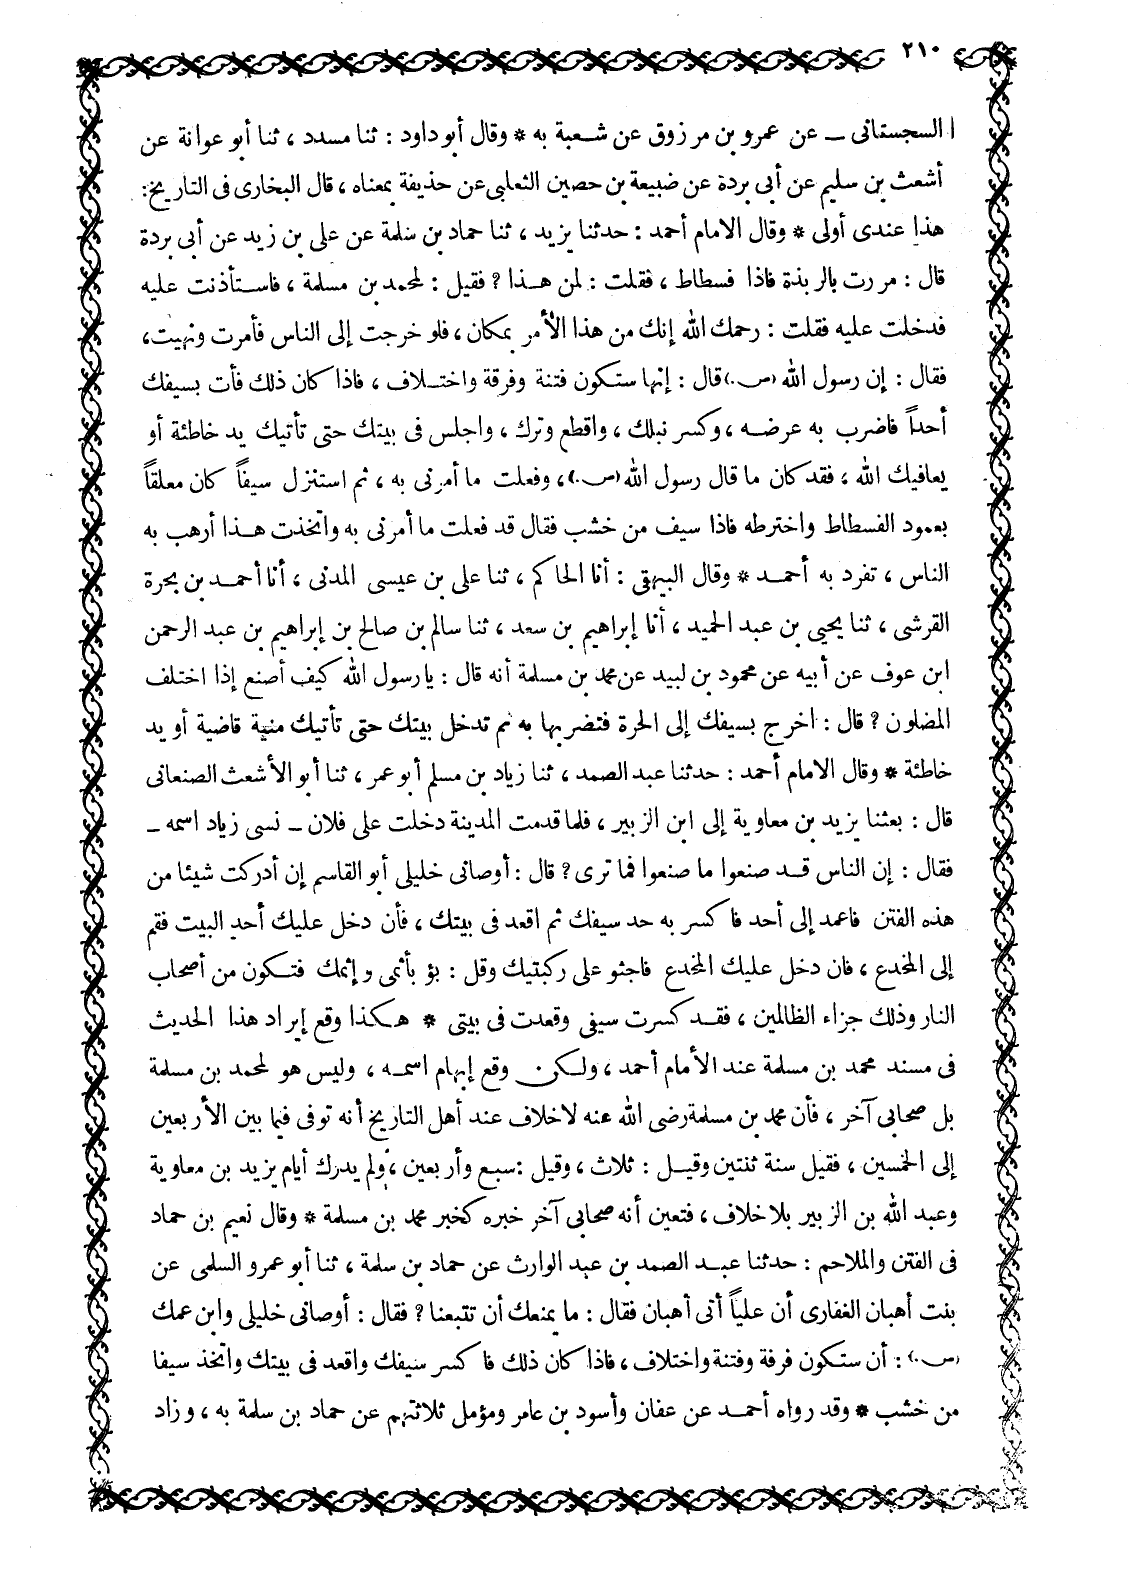 ٢١٠
السجستانى ــ عن عمرو بن مرزوق عن شعبة به * وقال أبو داود : ثنا مسدد ، ثنا أبو عوانة عن
أشعث بن سليم عن أبى بردة عن ضبيعة بن حصين الثعلبى عن حذيفة بمعناه ، قال البخارى فى التاريخ :
هذا عندى أولى * وقال الامام أحمد : حدثنا يزيد ، ثنا حماد بن سلمة عن على بن زيد عن أبى بردة
قال : مررت بالربذة فاذا فسطاط ، فقلت : لمن هذا ? فقيل : لمحمد بن مسلمة ، فاستأذنت عليه
فدخلت عليه فقلت : رحمك الله إنك من هذا الأمر بمكان ، فلو خرجت إلى الناس فأمرت ونهيت ،
فقال : إن رسول الله (س.) قال : إنها ستكون فتنة وفرقة واختلاف ، فاذا كان ذلك فأت بسيفك
أحداً فاضرب به عرضه ، وكسر نبلك ، واقطع وترك ، واجلس فى بيتك حتى تأتيك يد خاطئة أو
يعافيك الله ، فقد كان ما قال رسول الله (س.) ، وفعلت ما أمرنى به ، ثم استنزل سيفاً كان معلقاً
بعمود الفسطاط واخترطه فاذا سيف من خشب فقال قد فعلت ما أمرنى به واتخذت هذا أرهب به
الناس ، تفرد به أحمد * وقال البيهقى : أنا الحاكم ، ثنا على بن عيسى المدنى ، أنا أحمد بن بحرة
القرشى ، ثنا يحيى بن عبد الحميد ، أنا إبراهيم بن سعد ، ثنا سالم بن صالح بن إبراهيم بن عبد الرحمن
ابن عوف عن أبيه عن محمود بن لبيد عن محمد بن مسلمة أنه قال : يا رسول الله كيف أصنع إذا اختلف
المضلون ? قال : اخرج بسيفك إلى الحرة فتضربها به ثم تدخل بيتك حتى تأتيك منية قاضية أو يد
خاطئة * وقال الامام أحمد : حدثنا عبد الصمد ، ثنا زياد بن مسلم أبو عمر ، ثنا أبو الأشعث الصنعانى
قال : بعثنا يزيد بن معاوية إلى ابن الزبير ، فلما قدمت المدينة دخلت على فلان ــ نسى زياد اسمه ــ
فقال : إن الناس قد صنعوا ما صنعوا فما ترى ? قال : أوصانى خليلى أبو القاسم إن أدركت شيئا من
هذه الفتن فاعمد إلى أحد فاكسر به حد سيفك ثم اقعد فى بيتك ، فأن دخل عليك أحد البيت فقم
إلى المخدع ، فان دخل عليك المخدع فاجثو على ركبتيك وقل : بؤ بأثمى وإثمك فتكون من أصحاب
النار وذلك جزاء الظالمين ، فقد كسرت سيفى وقعدت فى بيتى * هكذا وقع إيراد هذا الحديث
فى مسند محمد بن مسلمة عند الأمام أحمد ، ولكن وقع إبهام اسمه ، وليس هو لمحمد بن مسلمة
بل صحابى آخر ، فأن محمد بن مسلمة رضى الله عنه لا خلاف عند أهل التاريخ أنه توفى فيما بين الأربعين
إلى الخمسين ، فقيل سنة ثنتين وقيل : ثلاث ، وقيل : سبع وأربعين ، ولم يدرك أيام يزيد بن معاوية
وعبد الله بن الزبير بلا خلاف ، فتعين أنه صحابى آخر خبره كخبر محمد بن مسلمة * وقال نعيم بن حماد
فى الفتن والملاحم : حدثنا عبد الصمد بن عبد الوارث عن حماد بن سلمة ، ثنا أبو عمرو السلمى عن
بنت أهبان الغفارى أن علياً أتى أهبان فقال : ما يمنعك أن تتبعنا ? فقال : أوصانى خليلى وابن عمك
(س.) : أن ستكون فرقة وفتنة واختلاف ، فاذا كان ذلك فاكسر سيفك واقعد فى بيتك واتخذ سيفا
من خشب * وقد رواه أحمد عن عفان وأسود بن عامر ومؤمل ثلاثتهم عن حماد بن سلمة به ، وزاد